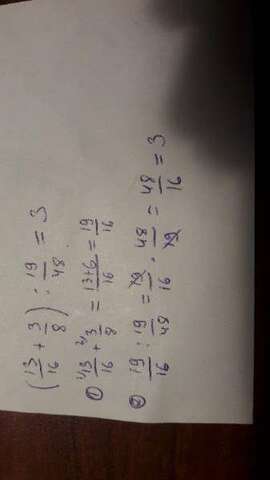 (13/16 + 3/8) : 19/48 = 3
① ¹⁾13/16 + ²⁾3/8 = 13+6/16 = 19/16
② 19/16 : 19/48 = 19/16 · 48/19 = 48/16 = 3